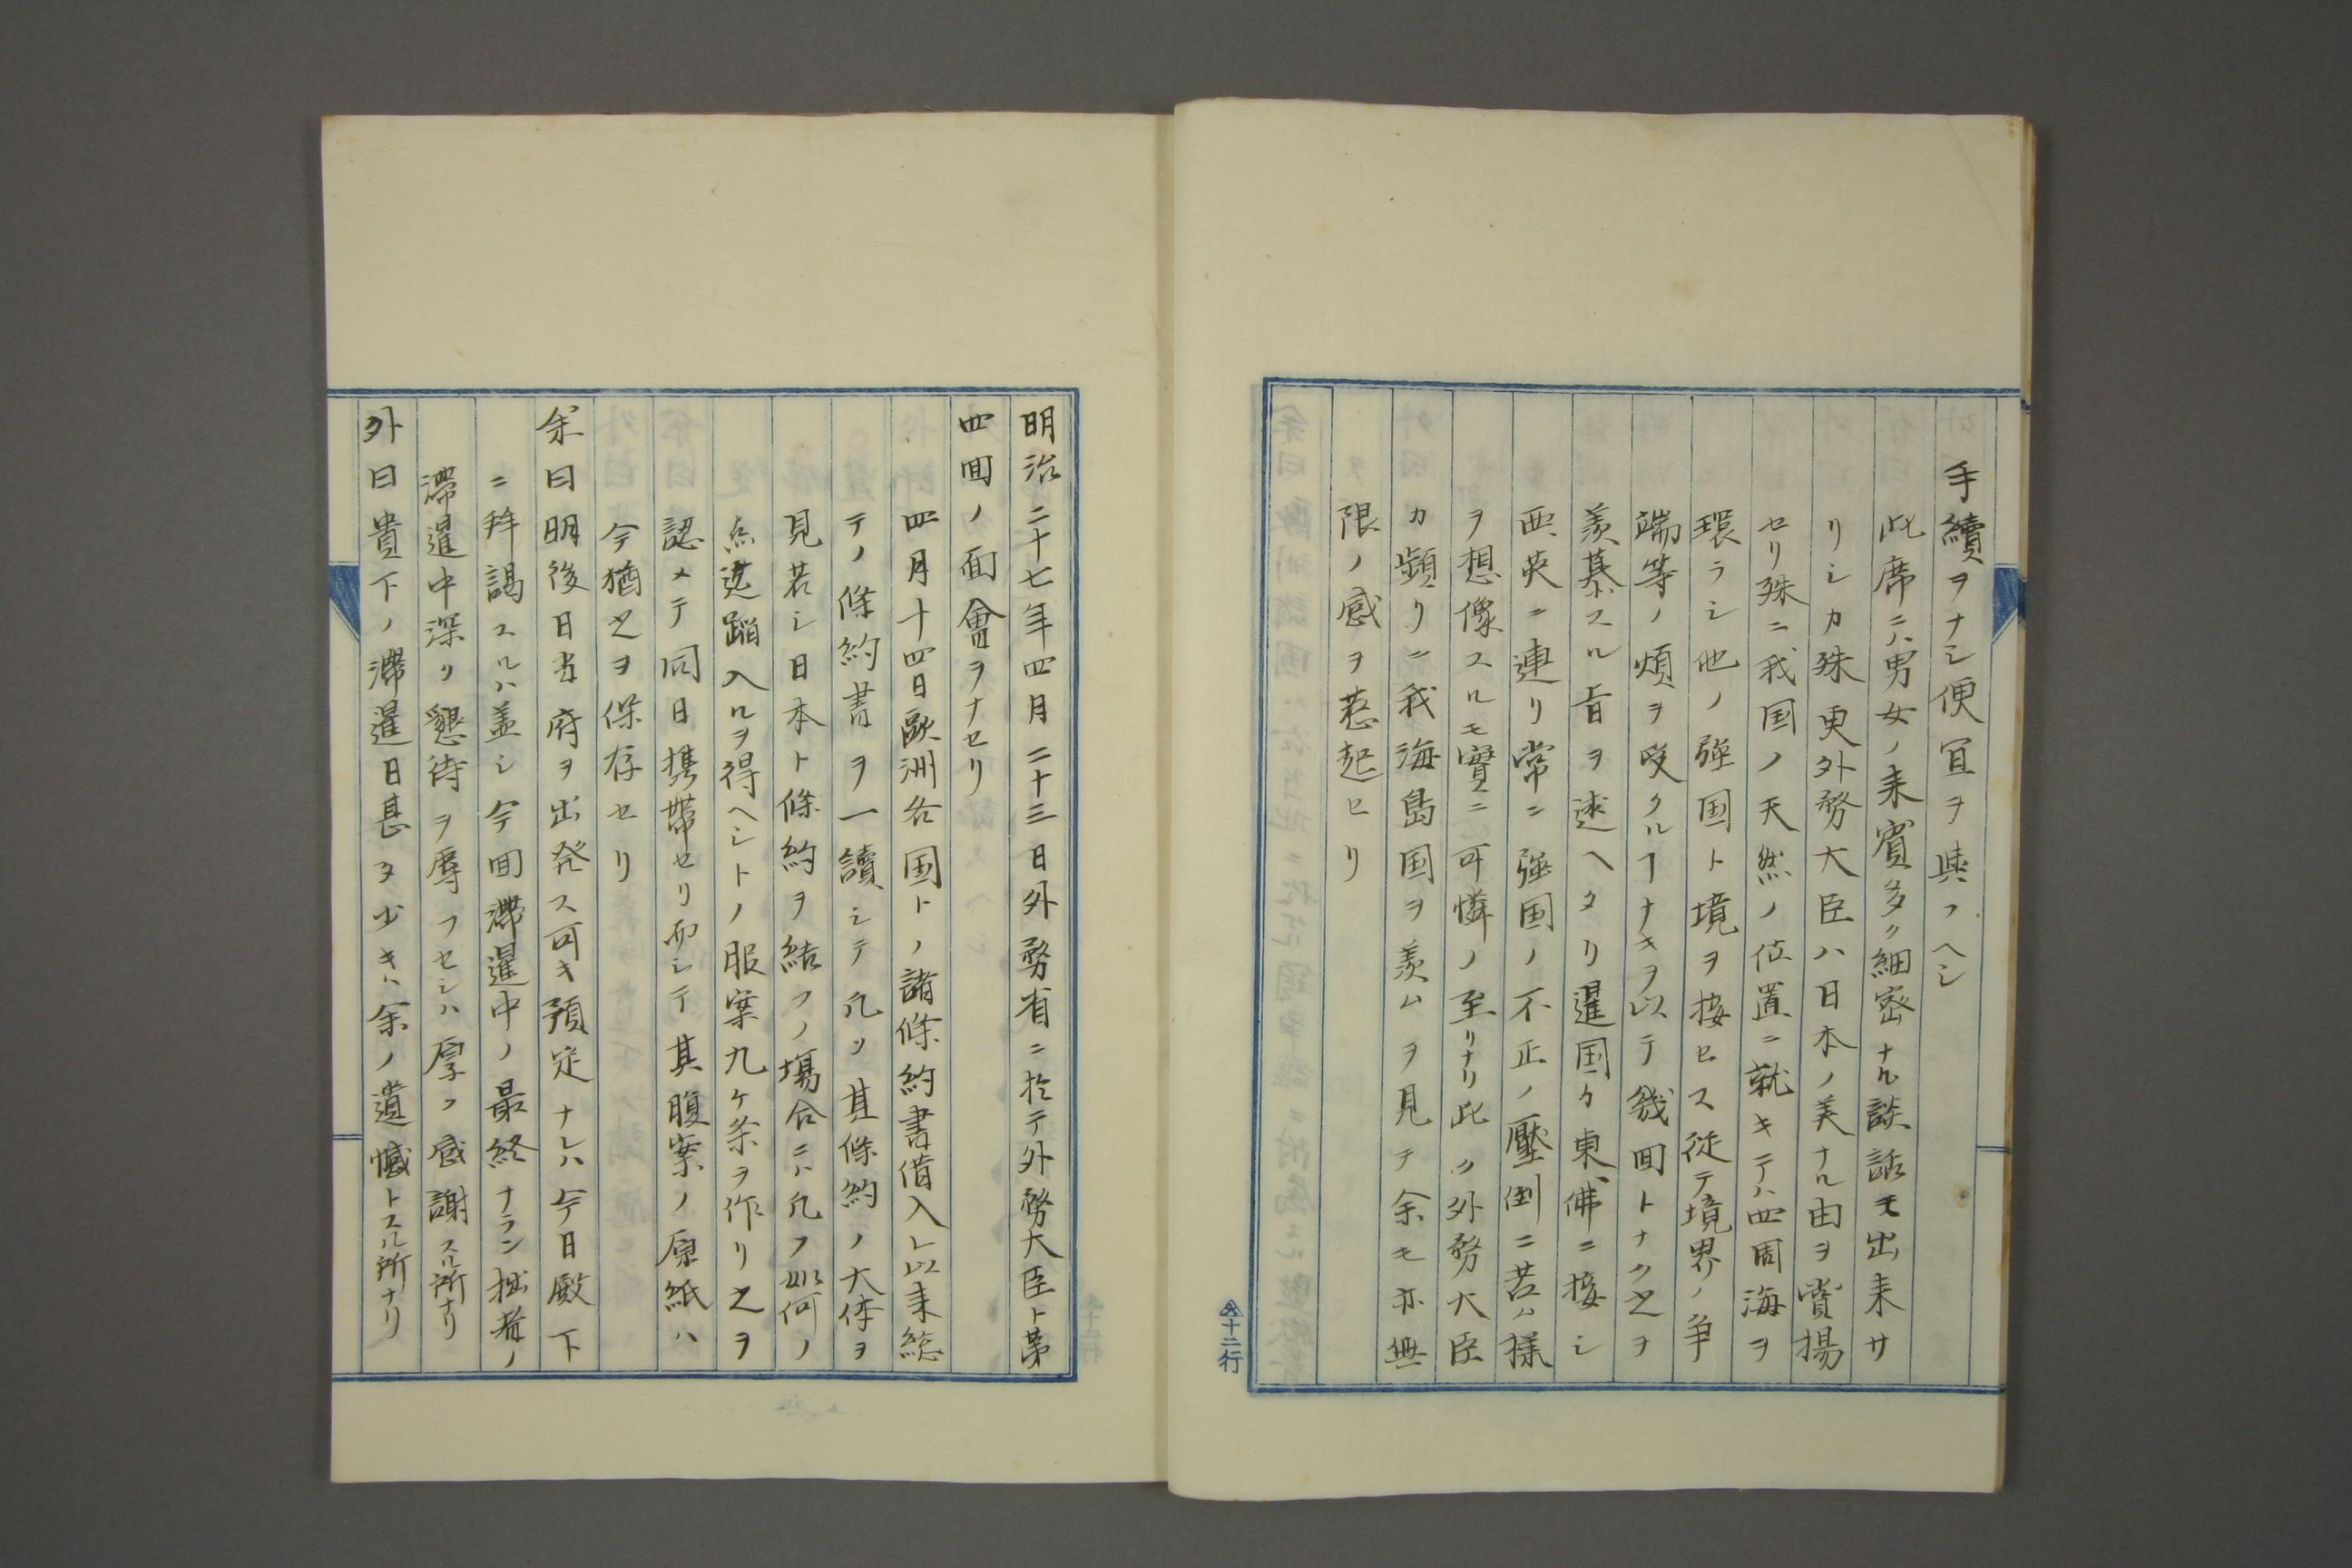 手續ヲナシ便宜ヲ與フヘシ
此席ニハ男女ノ来賓多ク細密ナル談話モ出来サ
リシカ殊更外務大臣ハ日本ノ美ナル由ヲ賞揚
セリ殊ニ我国ノ天然ノ位置ニ就キテハ四周海ヲ
環ラシ他ノ強国ト境ヲ接セス従テ境界ノ争
端等ノ煩ヲ受クルヿナキヲ以テ幾回トナク之ヲ
羨慕スル旨ヲ述ヘタリ暹国カ東、佛ニ接シ
西、英ニ連リ常ニ強国ノ不正ノ壓倒ニ苦ム様
ヲ想像スルモ實ニ可憐ノ至リナリ此ノ外務大臣
カ頻リニ我海島国ヲ羨ムヲ見テ余モ亦無
限ノ感ヲ惹起セリ
十二行
明治二十七年四月二十三日外務省ニ於テ外務大臣ト第
四回ノ面會ヲナセリ
四月十四日歐洲各国トノ諸條約書借入レ以来総
テノ條約書ヲ一讀シテ凡ソ其條約ノ大体ヲ
見若シ日本ト條約ヲ結フノ場合ニハ凡ソ如何ノ
点迄蹈入ルヲ得ヘシトノ服案九ケ条ヲ作リ之ヲ
認メテ同日携帯セリ而シテ其腹案ノ原紙ハ
今猶之ヲ保存セリ
余曰明後日当府ヲ出発ス可キ預定ナレハ今日殿下
ニ拜謁スルハ蓋シ今回滞暹中ノ最終ナラン拙者ノ
滞暹中深ク懇待ヲ辱フセシハ厚ク感謝スル所ナリ
外曰貴下ノ滞暹日甚タ少キハ余ノ遺憾トスル所ナリ